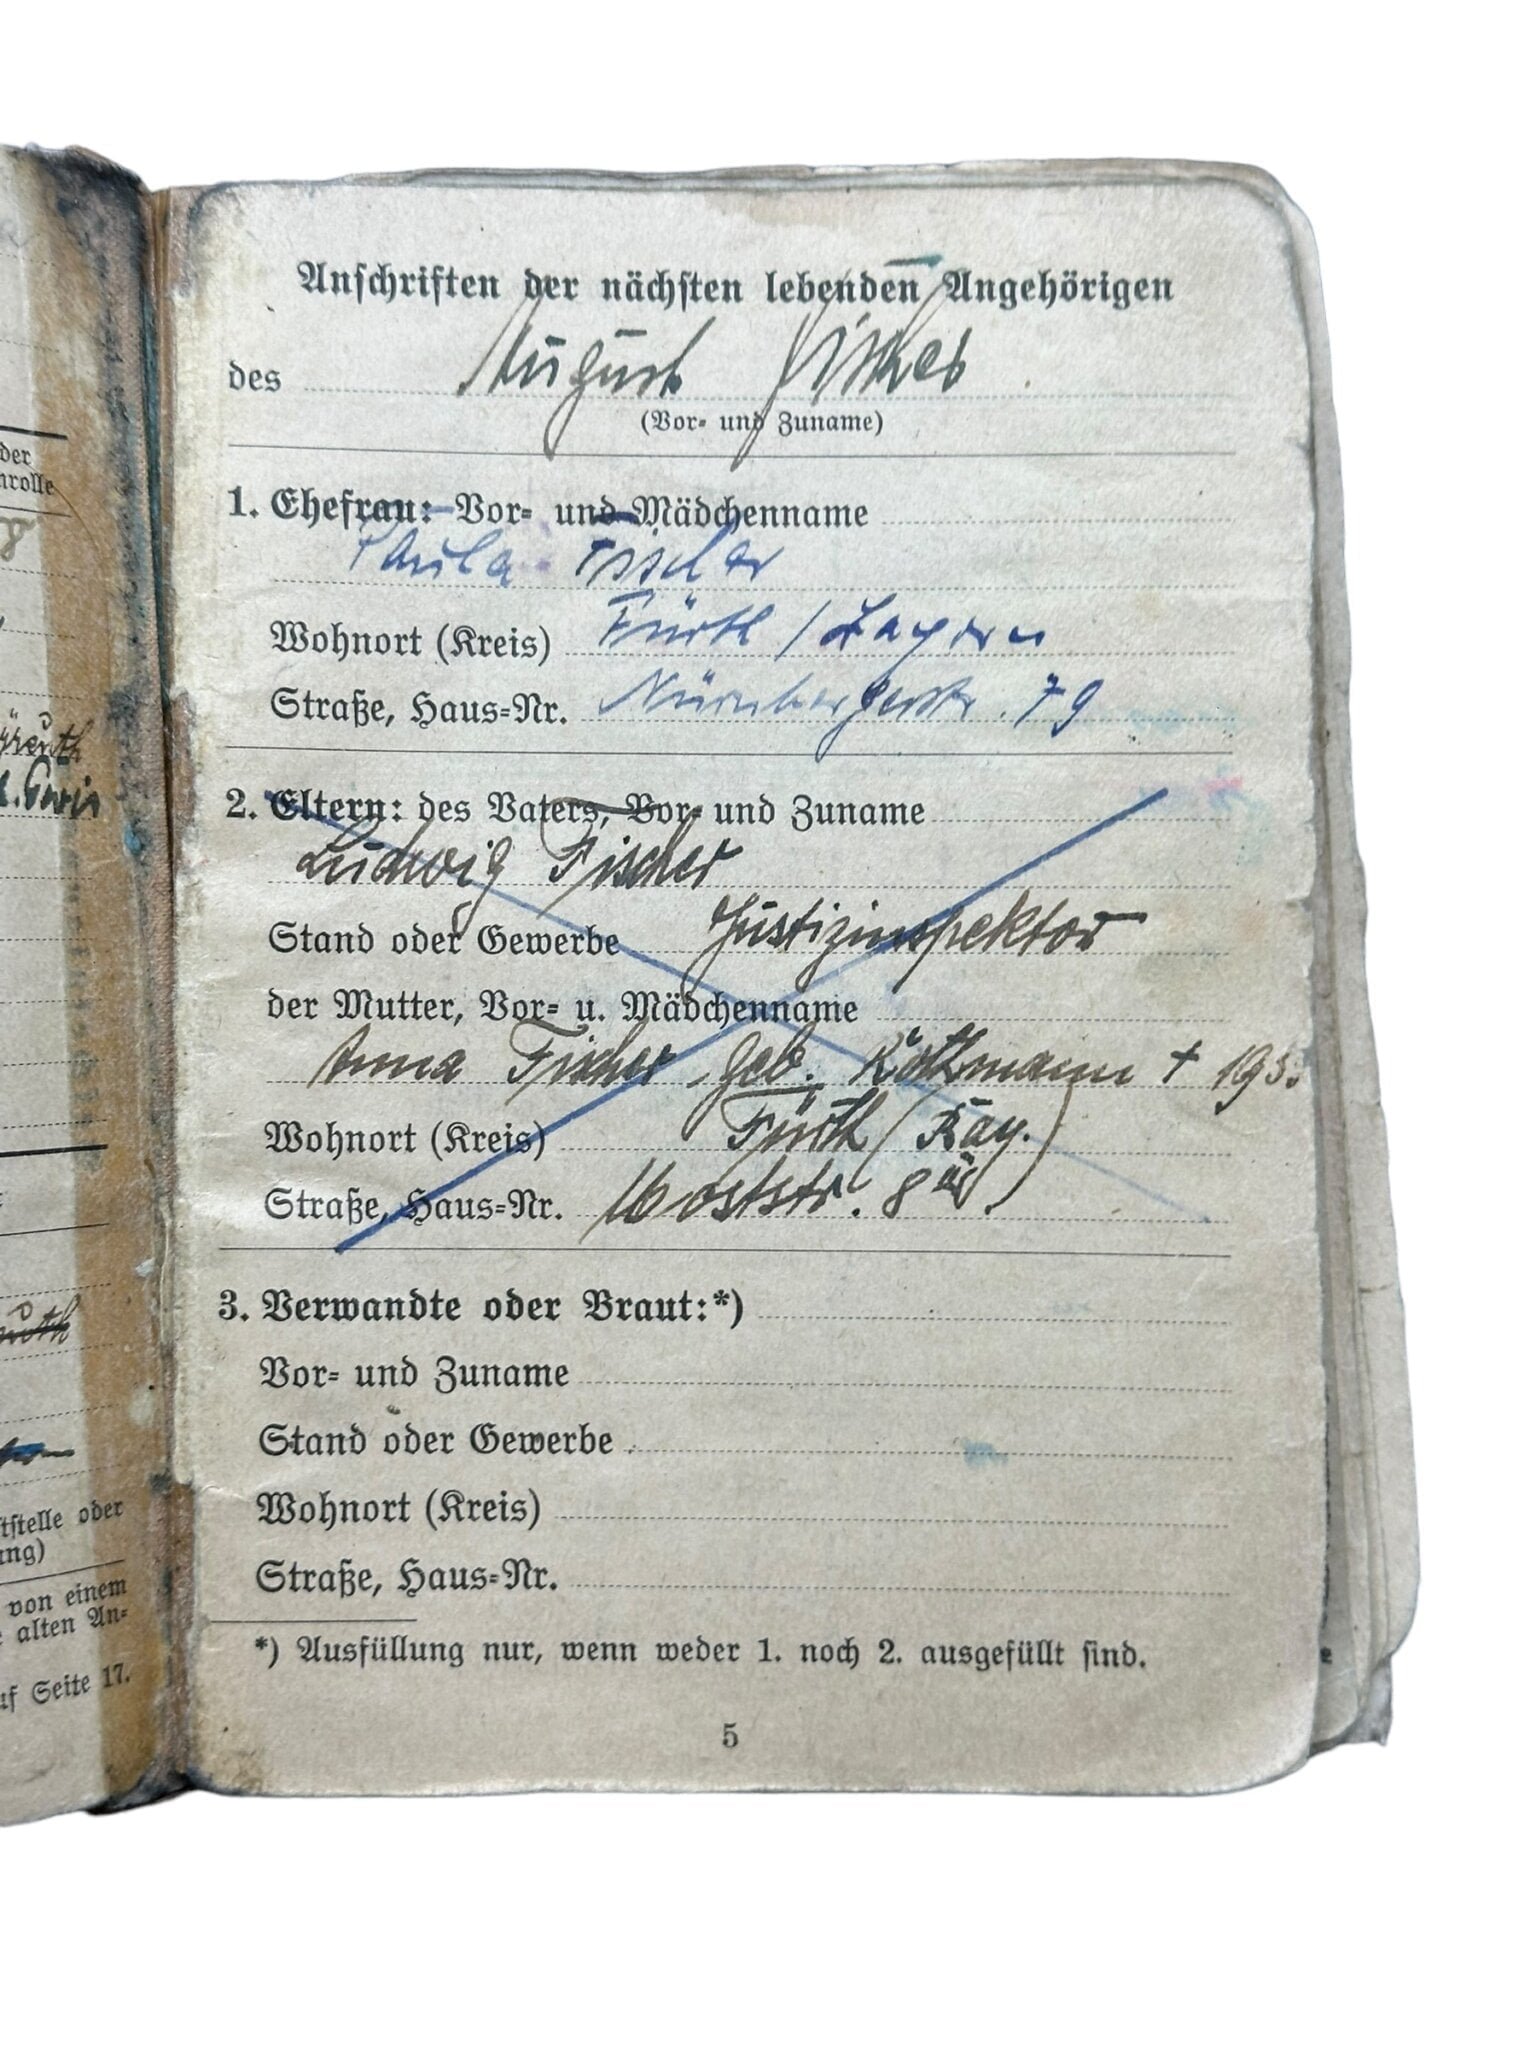 der
nrolle
tstelle oder
ung)
von einem
alten An-
uf Seite 17.
Anschriften der nächsten lebenden Angehörigen
des August Fischer
(Vor- und Zuname)
1. Ehefrau: Vor- und Mädchenname
Paula Fischer
Wohnort (Kreis) Fürth / Bayern
Straße, Haus-Nr. Nürnbergerstr. 79
2. Eltern: des Vaters, Vor- und Zuname
Ludwig Fischer
Stand oder Gewerbe Justizinspektor
der Mutter, Vor- u. Mädchenname
Anna Fischer, geb. † 193
Wohnort (Kreis) Fürth (Bay.)
Straße, Haus-Nr. Moststr. 8
3. Verwandte oder Braut:*)
Vor- und Zuname
Stand oder Gewerbe
Wohnort (Kreis)
Straße, Haus-Nr.
*) Ausfüllung nur, wenn weder 1. noch 2. ausgefüllt sind.
5